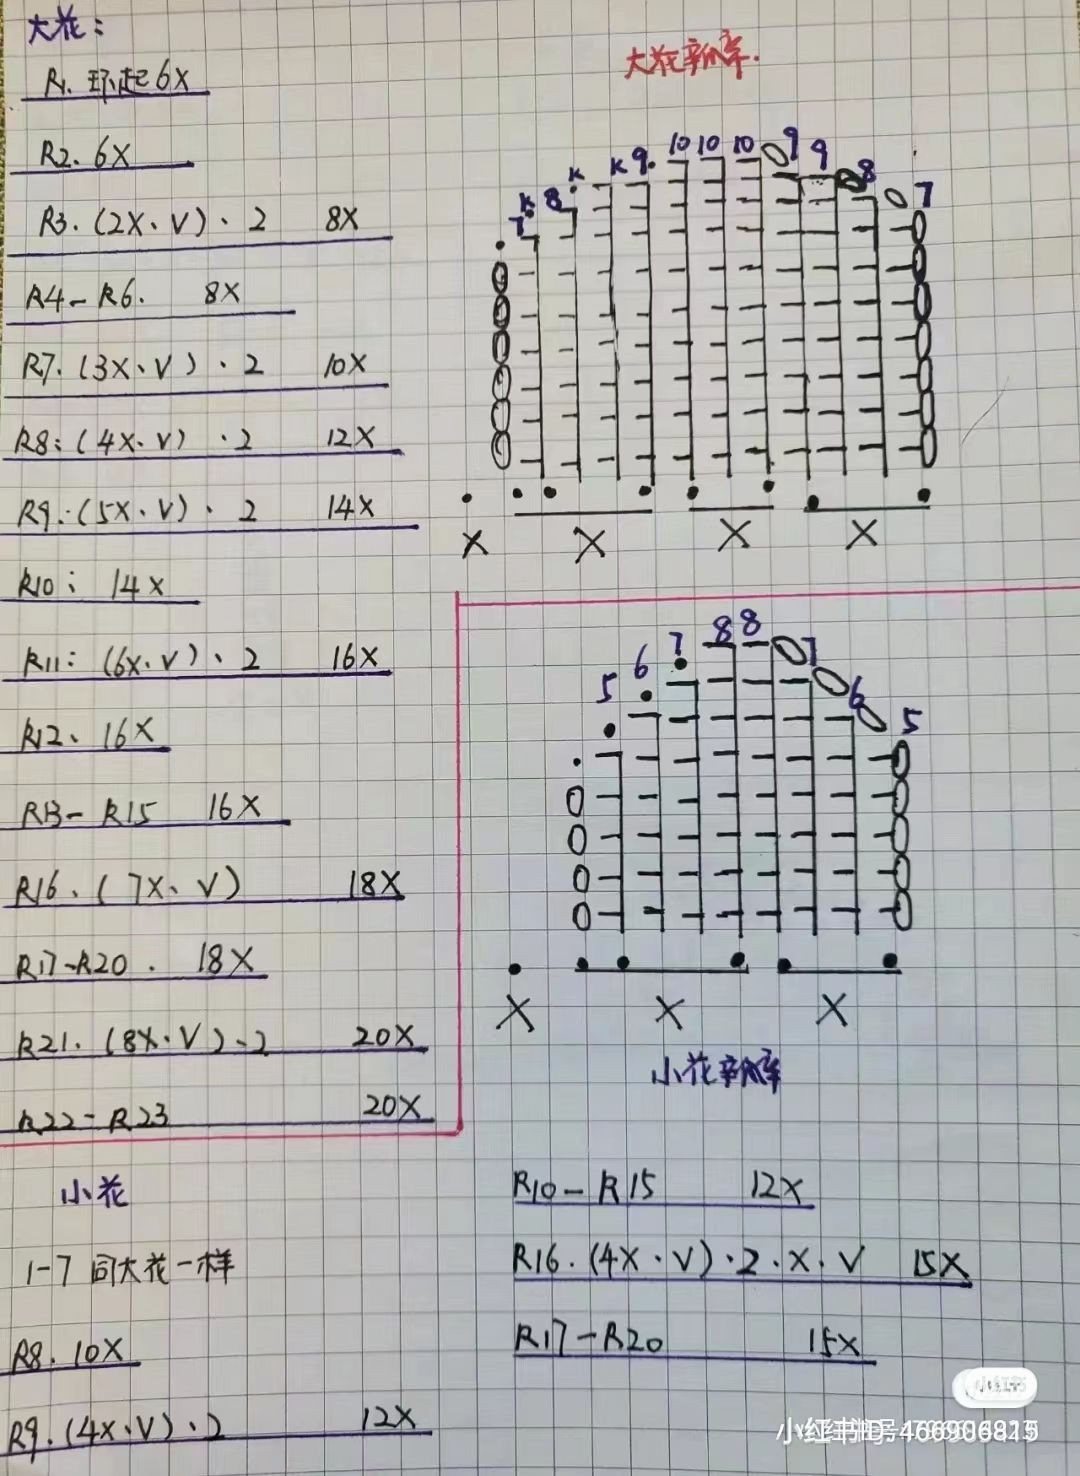 大花:
R1. 环起6X
R2. 6X
R3. (2X.V).2 8X
R4-R6. 8X
R7. (3X.V).2 10X
R8: (4X.V).2 12X
R9: (5X.V).2 14X
R10: 14X
R11: (6X.V).2 16X
R12、16X
R13-R15 16X
R16. (7X.V) 18X
R17-R20. 18X
R21. (8X.V).2 20X
R22-R23 20X
大花新瓣.
7 8 K K 9 10 10 10 9 9 8 7
X X X X
5 6 7 8 8 7 6 5
X X X
小花瓣
小花
1-7 同大花一样
R8. 10X
R9. (4X.V).2 12X
R10-R15 12X
R16. (4X.V).2.X.V 15X
R17-R20 15X
小红书